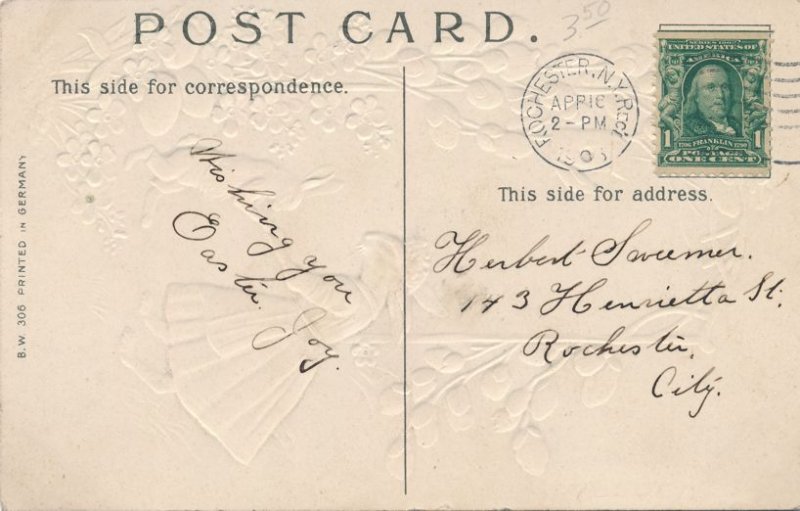 3.50
POST CARD.
This side for correspondence.
ROCHESTER, N.Y. Rec'd
APR 16
2 - PM
SERIES 1902
UNITED STATES OF
AMERICA
1 FRANKLIN 1
POSTAGE
ONE CENT
This side for address.
Wishing you
Easter Joy.
Herbert Sweemer.
143 Henrietta St.
Rochester,
City.
B.W. 306 PRINTED IN GERMANY